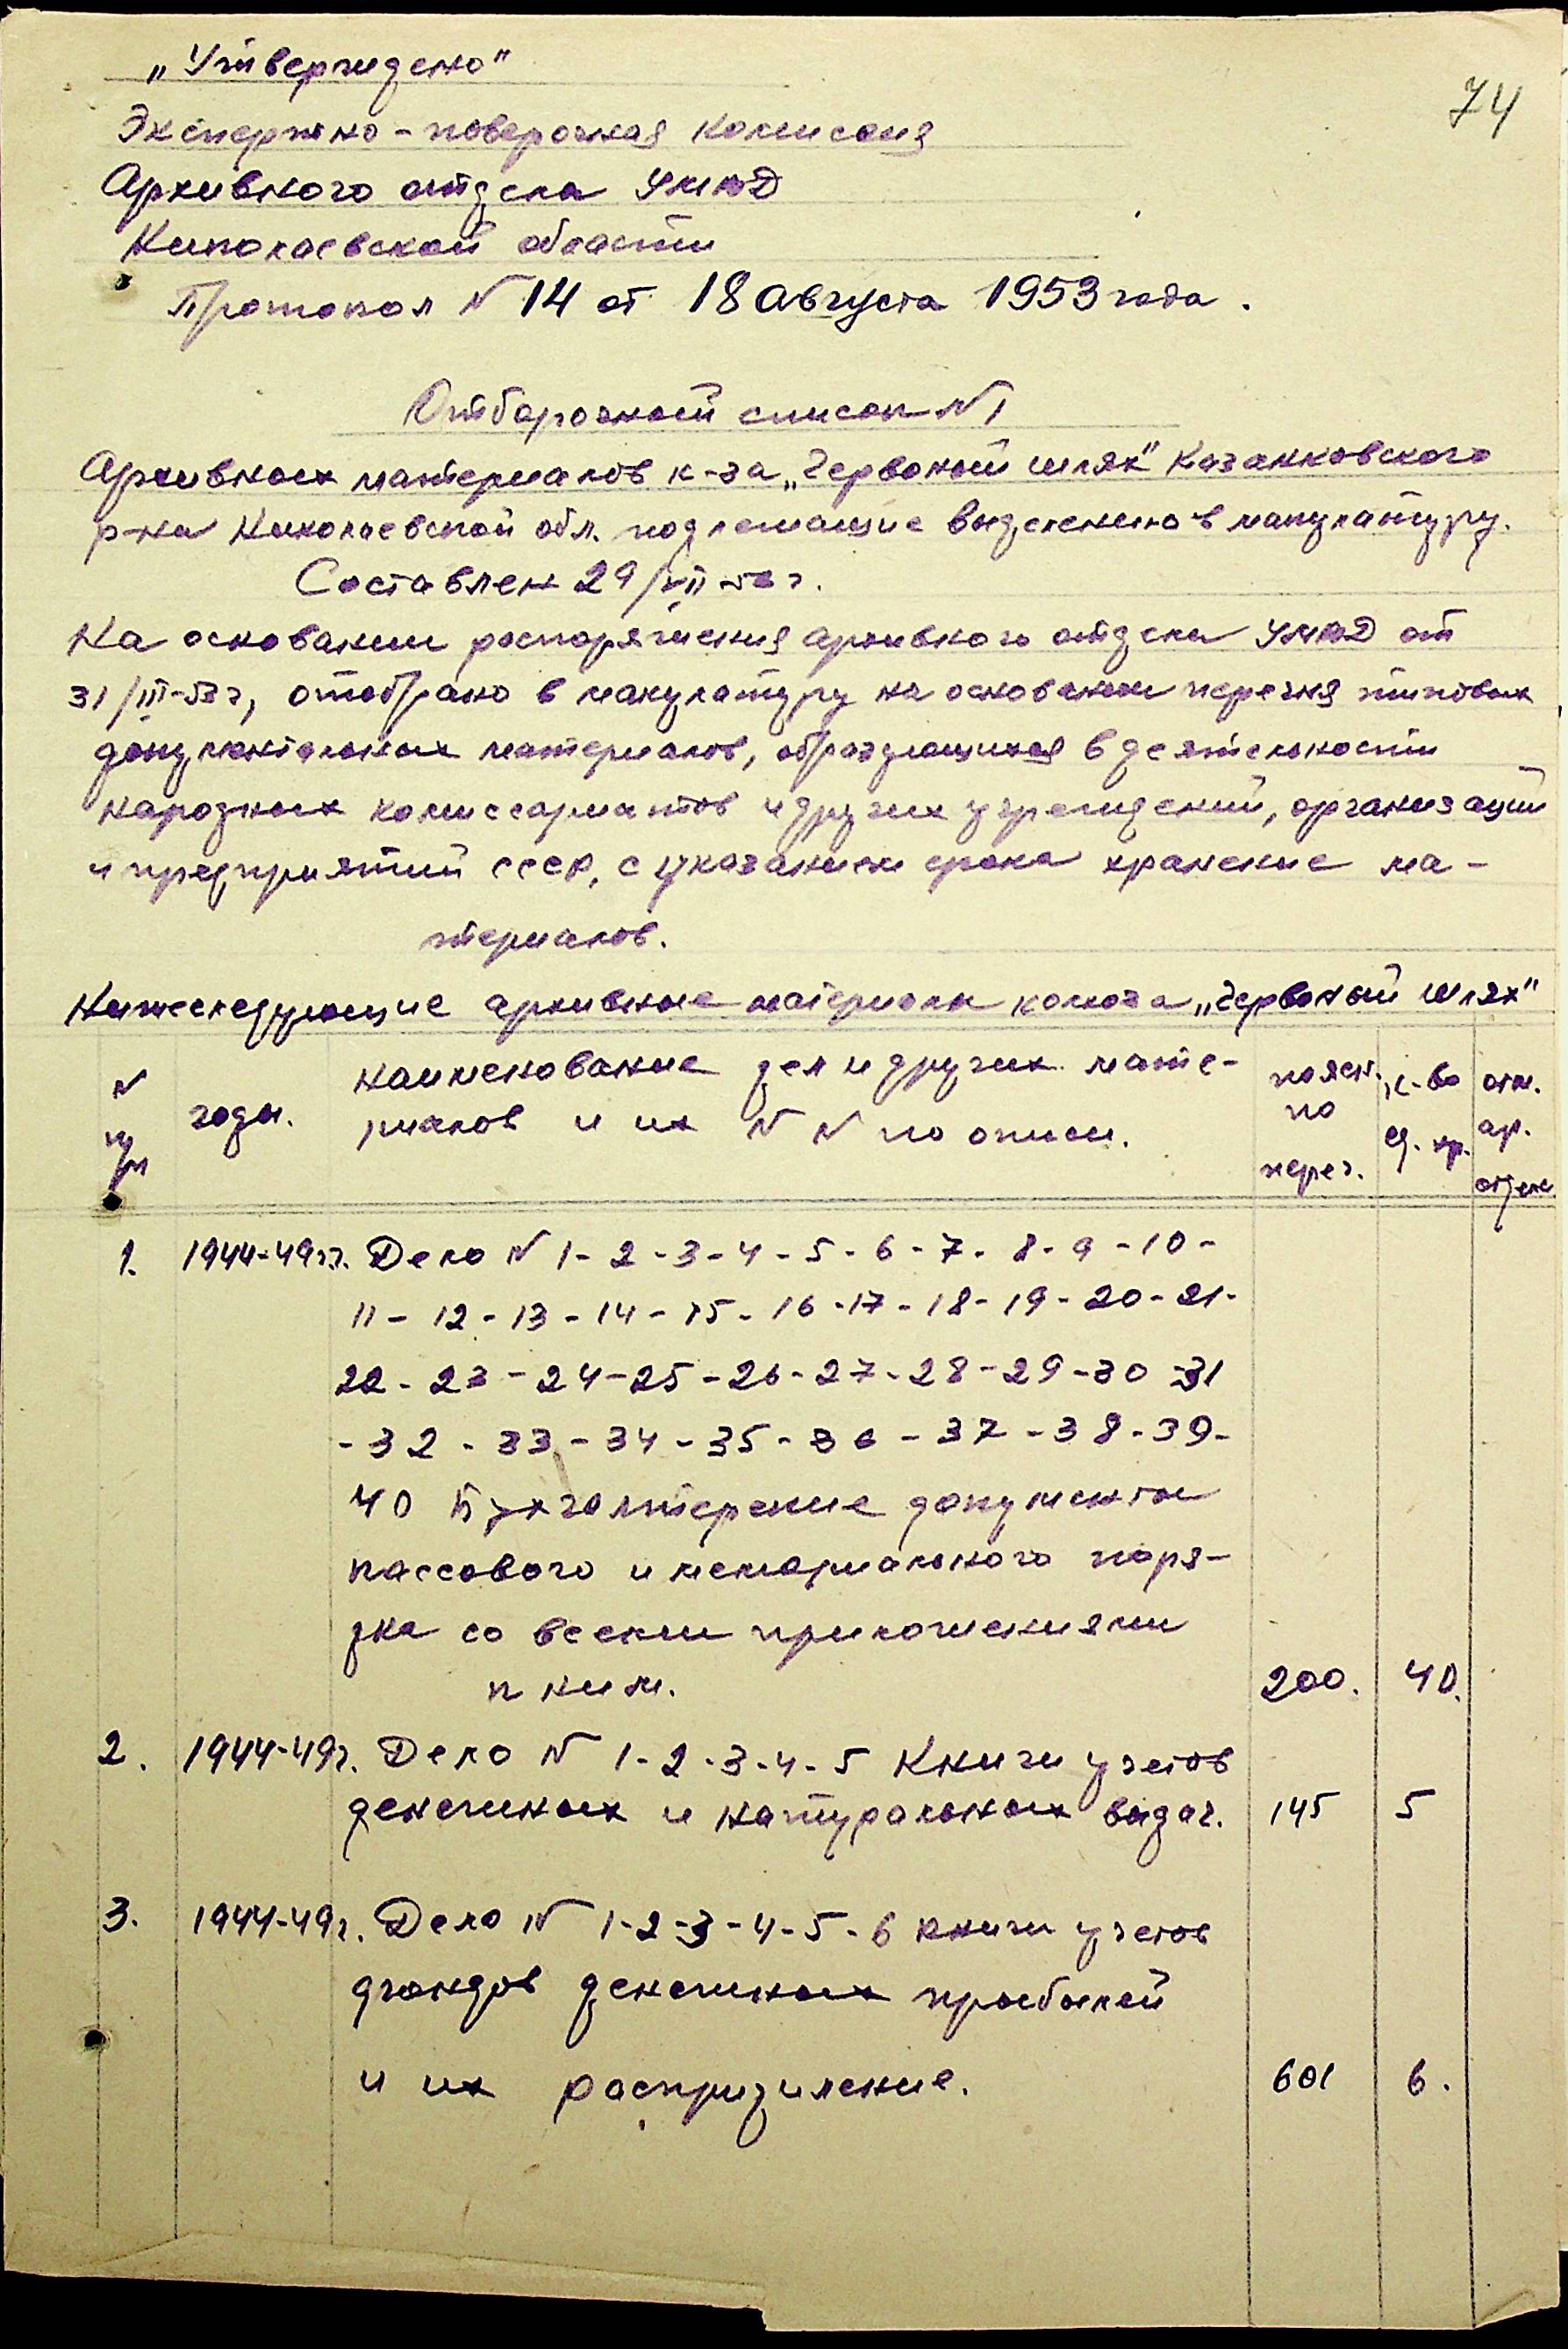 74
„Утверждено"
Экспертно-поверочная комисоия
Архивного отдела УМЮД
Николаевской области
Протокол N 14 от 18 августа 1953 года.
Отборочный список N 1
Архивных материалов к-за „Червоный шлях" Казанковского
р-на Николаевской обл. подлежащие выделению в макулатуру.
Составлен 29/VII-53 г.
На основании распоряжения архивного отдела УМЮД от
31/III-53 г, отобрано в макулатуру на основании перечня типовых
документальных материалов, образующихся в деятельности
народных комиссариатов и других учреждений, организаций
и предприятий СССР, с указанием срока хранение ма-
териалов.
Нижеследующие архивные материалы колхоза „Червоный шлях"
N п/п годы. наименование дел и других мате- по перег. к-во ед. хр. отм. ар. отдела
риалов и их N N по описи.
1. 1944-49гг. Дело N 1-2-3-4-5-6-7-8-9-10-
11-12-13-14-15-16-17-18-19-20-21-
22-23-24-25-26-27-28-29-30-31
-32-33-34-35-36-37-38-39-
40 Бухгалтерские документы
кассового и мемариального поря-
дка со всеми приложениями
к ним. 200. 40.
2. 1944-49г. Дело N 1-2-3-4-5 Книги учетов
денежных и натуральных видач. 145 5
3. 1944-49г. Дело N 1-2-3-4-5-6 книги учетов
фондов денежных прыбылей
и их распридиление. 601 6.